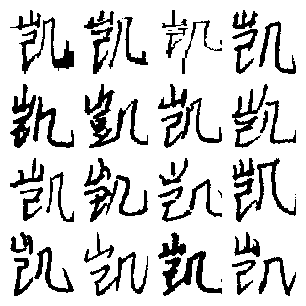 凯凯凯凯
凯凱凯凯
凯凯凯凯
凯凯凯凯